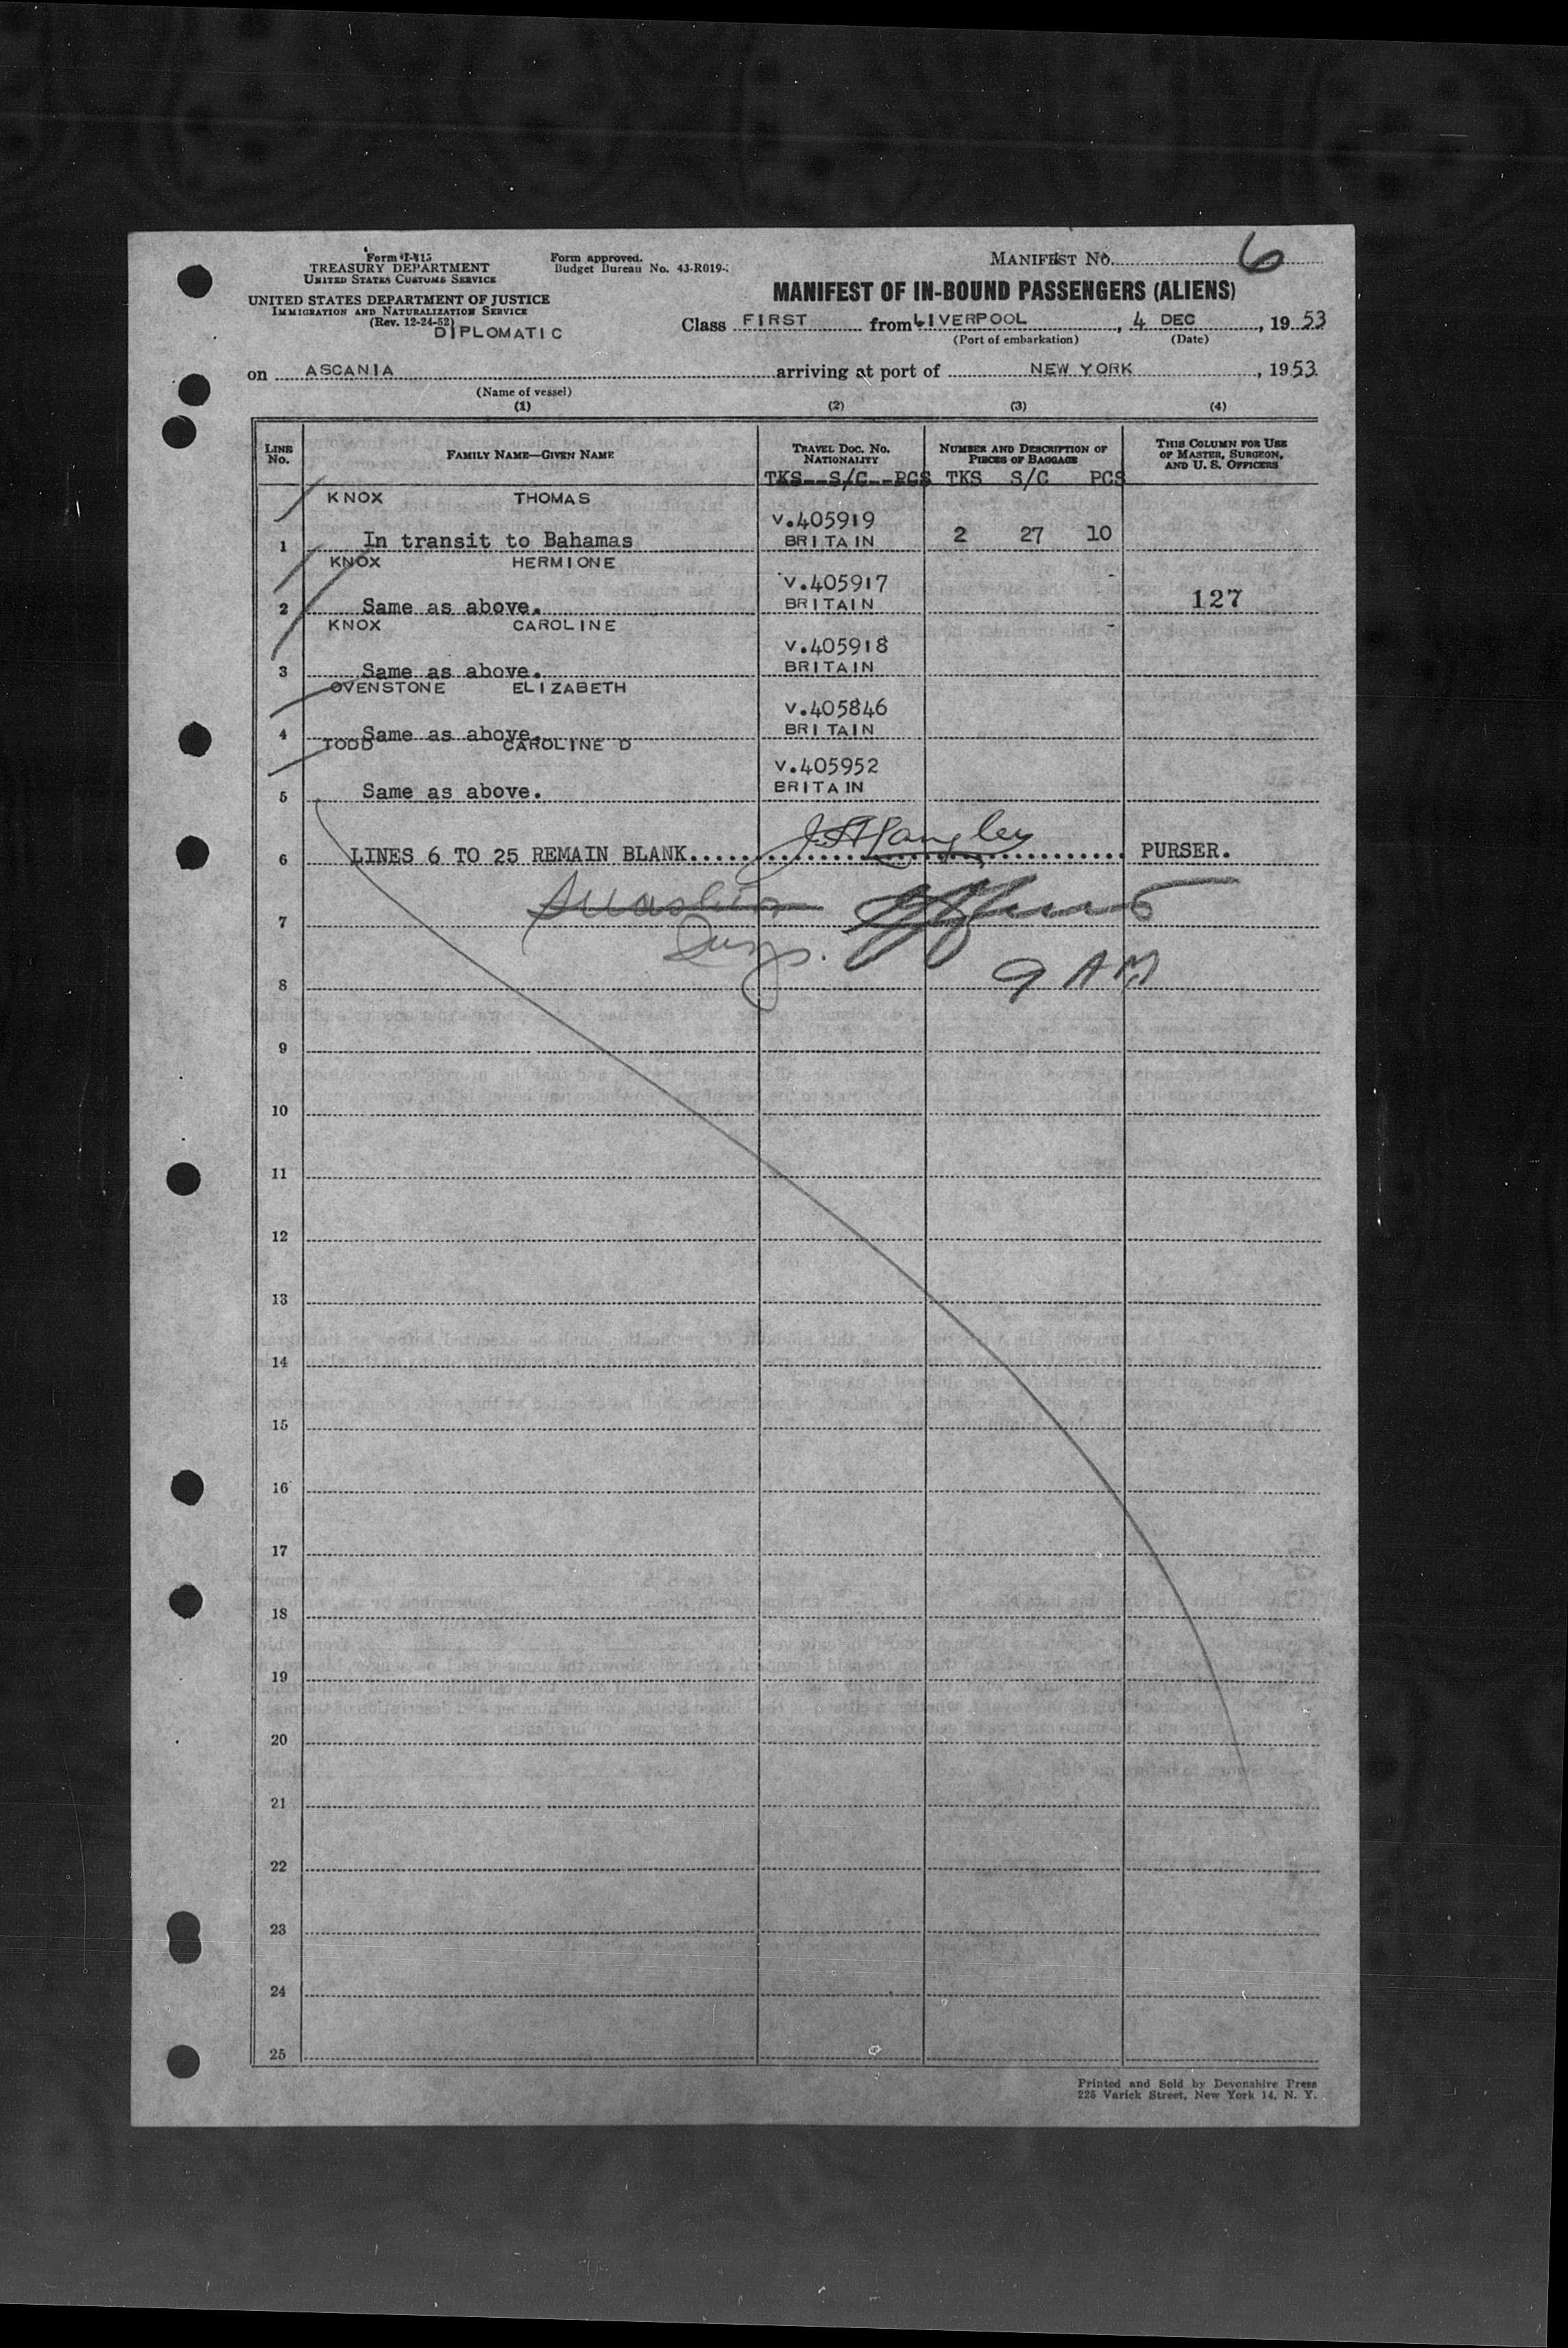 Form I-415
TREASURY DEPARTMENT
UNITED STATES CUSTOMS SERVICE
UNITED STATES DEPARTMENT OF JUSTICE
IMMIGRATION AND NATURALIZATION SERVICE
(Rev. 12-24-52)
DIPLOMATIC
Form approved.
Budget Bureau No. 43-R019-
MANIFEST No. 6
MANIFEST OF IN-BOUND PASSENGERS (ALIENS)
Class FIRST from LIVERPOOL, 4 DEC, 1953
(Port of embarkation) (Date)
on ASCANIA arriving at port of NEW YORK, 1953
(Name of vessel)
(1) (2) (3) (4)
LINE No. FAMILY NAME—GIVEN NAME TRAVEL DOC. No. NATIONALITY NUMBER AND DESCRIPTION OF PIECES OF BAGGAGE THIS COLUMN FOR USE OF MASTER, SURGEON, AND U. S. OFFICERS
TKS S/C PCS TKS S/C PCS
KNOX THOMAS V.405919
1 In transit to Bahamas BRITAIN 2 27 10
KNOX HERMIONE V.405917
2 Same as above. BRITAIN 127
KNOX CAROLINE V.405918
3 Same as above. BRITAIN
OVENSTONE ELIZABETH V.405846
4 Same as above. BRITAIN
TODD CAROLINE D V.405952
5 Same as above. BRITAIN
6 LINES 6 TO 25 REMAIN BLANK. PURSER.
7
8 9 AM
9
10
11
12
13
14
15
16
17
18
19
20
21
22
23
24
25
Printed and Sold by Devonshire Press
225 Varick Street, New York 14, N. Y.